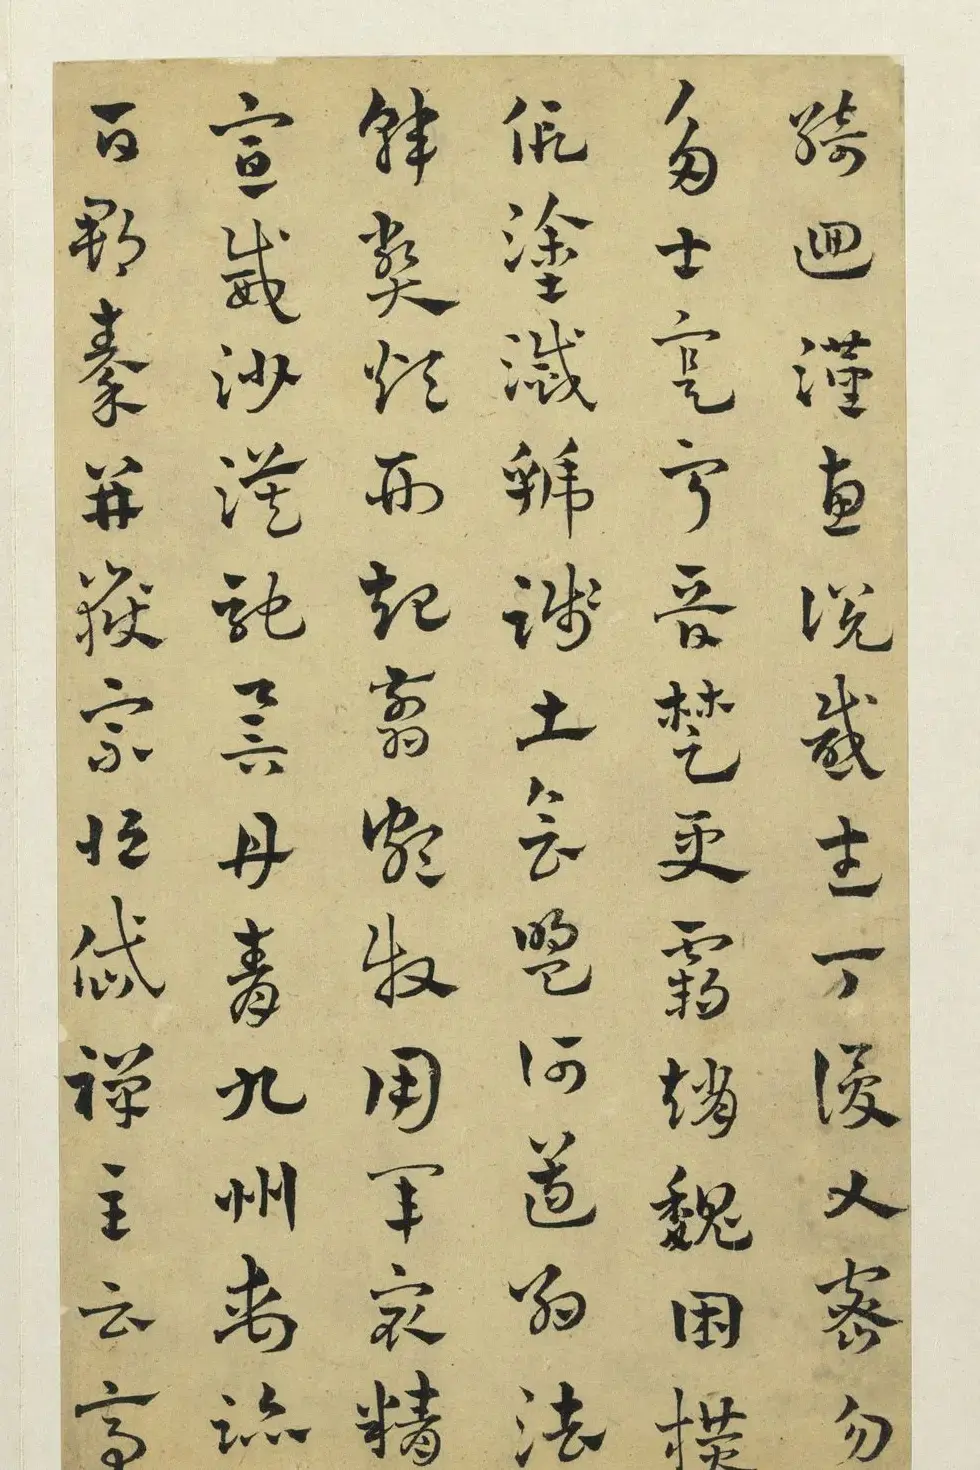 綺迴漢惠説感武丁俊乂密勿
多士寔寧晉楚更霸趙魏困橫
假塗滅虢踐土會盟何遵約法
韓弊煩刑起翦頗牧用軍最精
宣威沙漠馳譽丹青九州禹跡
百郡秦并嶽宗恒岱禪主云亭